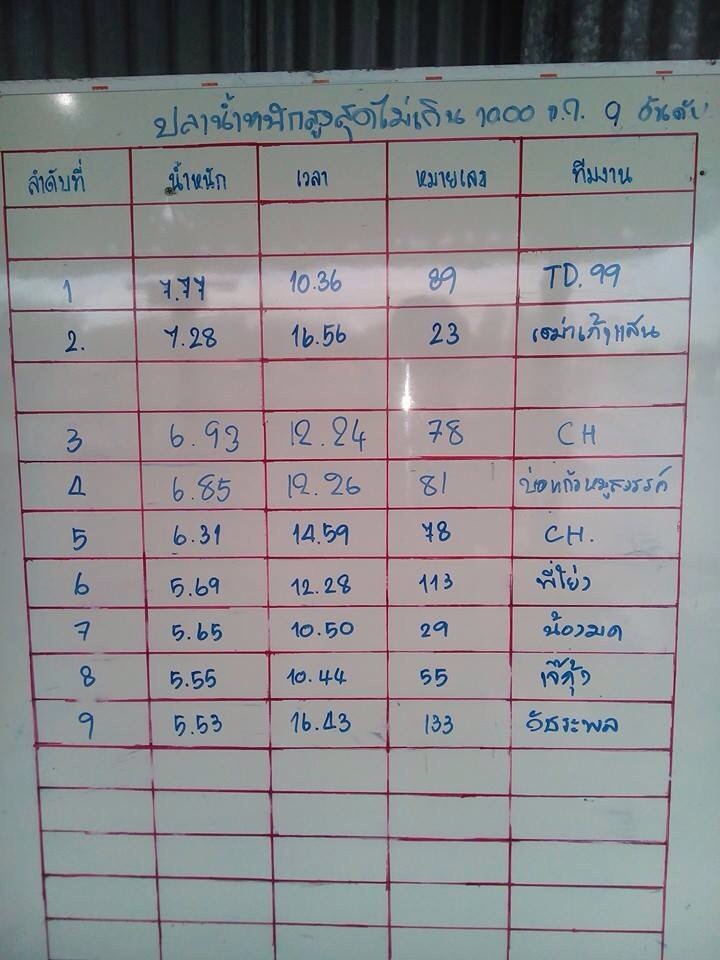 ปลาน้ำหนักสูงสุดไม่เกิน 10.00 ก.ก. 9 อันดับ
ลำดับที่ น้ำหนัก เวลา หมายเลข ทีมงาน
1 7.77 10.36 89 TD.99
2. 7.28 16.56 23
3 6.93 12.24 78 CH
4 6.85 12.26 81
5 6.31 14.59 78 CH.
6 5.69 12.28 113 พี่โย่ง
7 5.65 10.50 29 น้องมด
8 5.55 10.44 55 เจ๊กุ้ง
9 5.53 16.43 133 วัชระพล